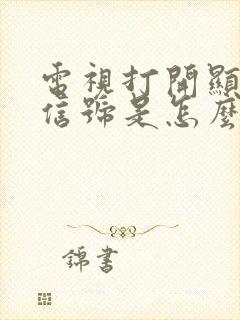 電視打開顯
信號是怎麼
錦書